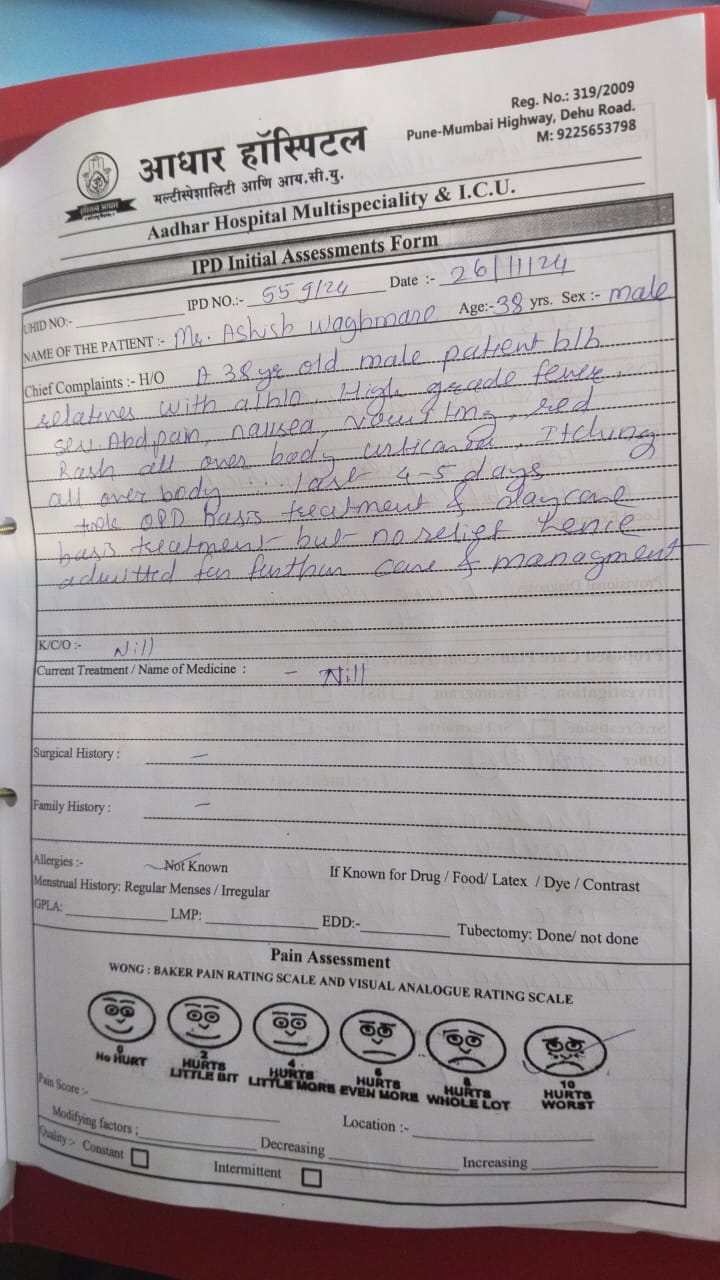 Reg. No.: 319/2009
Pune-Mumbai Highway, Dehu Road.
M: 9225653798
आधार हॉस्पिटल
मल्टीस्पेशालिटी आणि आय.सी.यु.
Aadhar Hospital Multispeciality & I.C.U.
IPD Initial Assessments Form
UHID NO:- IPD NO.:- 559/24 Date :- 26/11/24
NAME OF THE PATIENT :- Mr. Ashish Waghmare Age:-38 yrs. Sex :- male
Chief Complaints :- H/O A 38 yr old male patient b/b
relatives with a/h/o, High grade fever,
sev. Abd pain, nausea, vomiting, red
Rash all over body urticaria, Itching
all over body last 4-5 days
took OPD basis treatment & daycare
basis treatment but no relief hence
admitted for further care & managment
K/C/O :- Nill
Current Treatment / Name of Medicine : - Nill
Surgical History : -
Family History : -
Allergies :- Not Known If Known for Drug / Food/ Latex / Dye / Contrast
Menstrual History: Regular Menses / Irregular
GPLA: LMP: EDD:- Tubectomy: Done/ not done
Pain Assessment
WONG : BAKER PAIN RATING SCALE AND VISUAL ANALOGUE RATING SCALE
0 2 4 6 8 10
No HURT HURTS LITTLE BIT HURTS LITTLE MORE HURTS EVEN MORE HURTS WHOLE LOT HURTS WORST
Pain Score :- Location :-
Modifying factors ; Decreasing Increasing
Quality :- Constant Intermittent